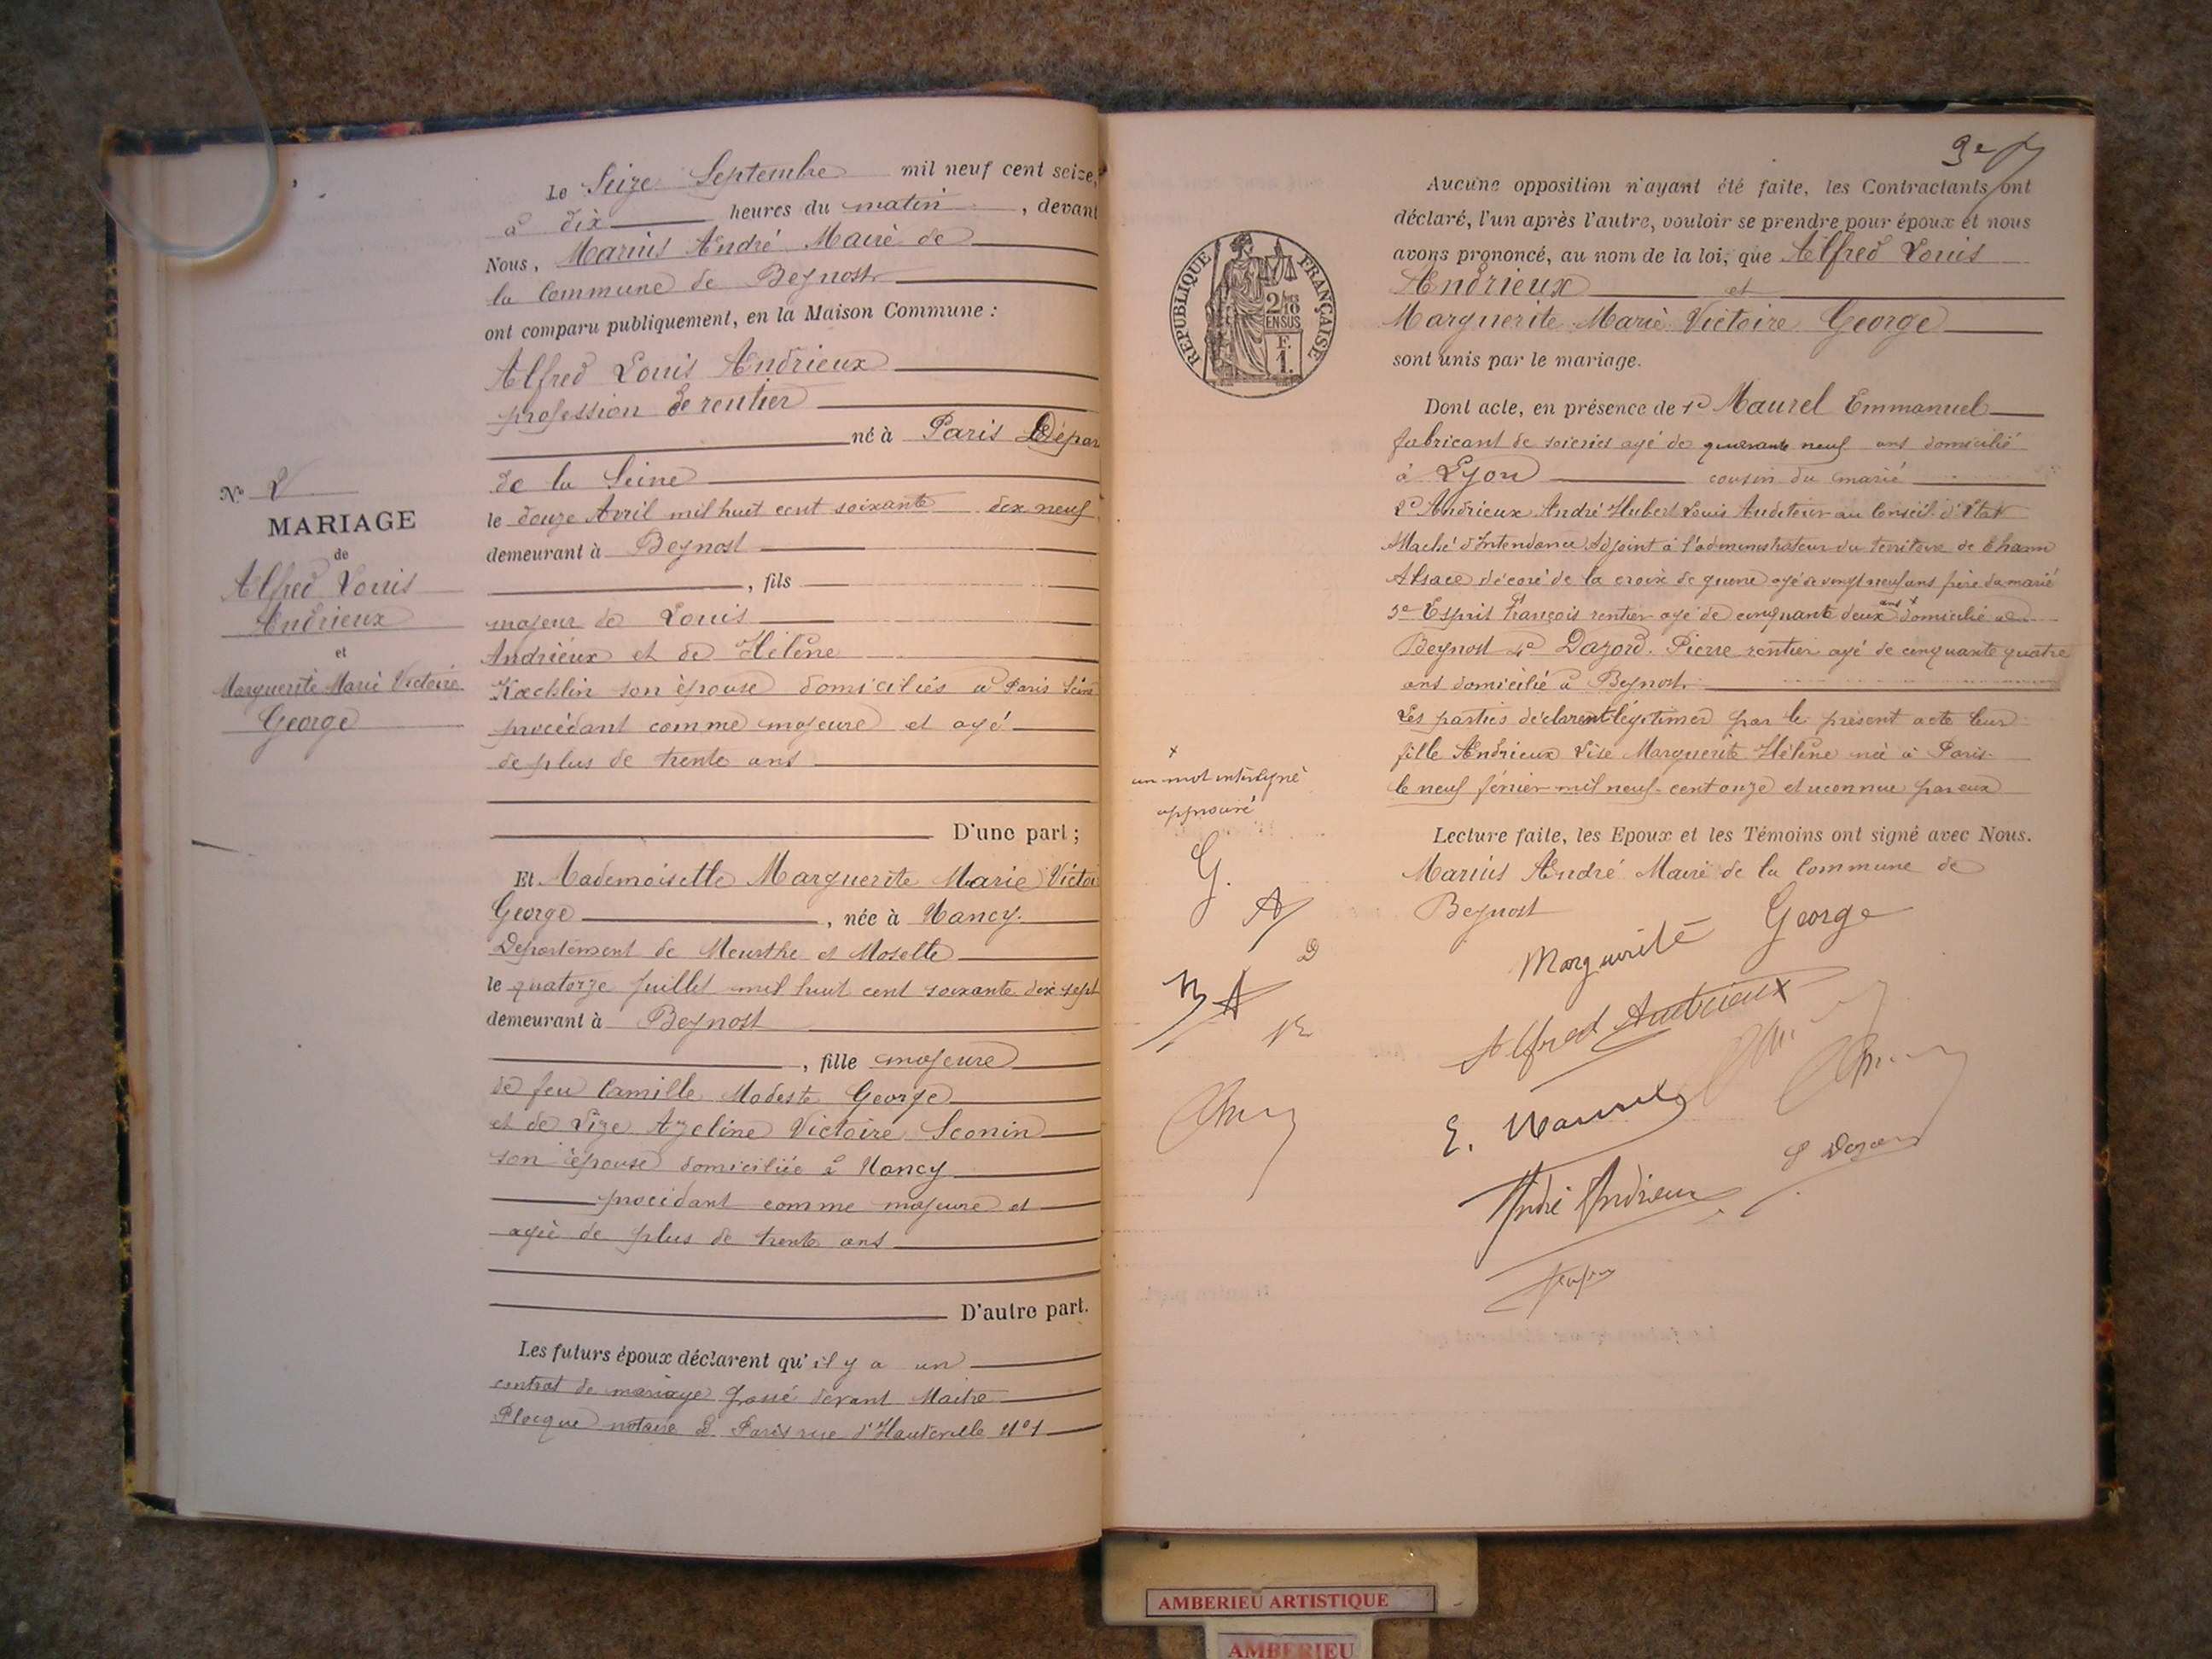 Le Seize Septembre mil neuf cent seize,
à dix heures du matin, devant
Nous, Marius André Maire de
la Commune de Beynost
ont comparu publiquement, en la Maison Commune :
Alfred Louis Andrieux
profession de rentier
né à Paris Dépar
de la Seine
le douze Avril mil huit cent soixante dix neuf
demeurant à Beynost
, fils
majeur de Louis
Andrieux et de Hélène
Kœchlin son épouse domiciliés à Paris Seine
procédant comme majeure et agé
de plus de trente ans
D'une part ;
Et Mademoiselle Marguerite Marie Victoi
George, née à Nancy.
Département de Meurthe et Moselle
le quatorze juillet mil huit cent soixante dix sept
demeurant à Beynost
, fille majeure
de feu Camille Modeste George
et de Lize Azeline Victoire Sconin
son épouse domiciliée à Nancy
procédant comme majeure et
agée de plus de trente ans
D'autre part.
Les futurs époux déclarent qu'il y a un
contrat de mariage passé devant Maitre
Plocque notaire à Paris rue d'Hauteville N° 1
N° 2
MARIAGE
de
Alfred Louis
Andrieux
et
Marguerite Marie Victoire
George
Aucune opposition n'ayant été faite, les Contractants ont
déclaré, l'un après l'autre, vouloir se prendre pour époux et nous
avons prononcé, au nom de la loi, que Alfred Louis
Andrieux et
Marguerite Marie Victoire George
sont unis par le mariage.
Dont acte, en présence de 1° Maurel Emmanuel
fabricant de soieries agé de quarante neuf ans domicilié
à Lyon cousin du marié
2° Andrieux André Hubert Louis Auditeur au Conseil d'Etat
Attaché d'Intendance Adjoint à l'administrateur du Territoire de Thann
Alsace décoré de la croix de guerre agé de vingt neuf ans frère du marié
3° Esprit François rentier agé de cinquante deux ans x domicilié à
Beynost 4° Dazord Pierre rentier agé de cinquante quatre
ans domicilié à Beynost.
Les parties déclarent légitimer par le présent acte leur
fille Andrieux Lise Marguerite Hélène née à Paris
le neuf février mil neuf cent onze et reconnue par eux
Lecture faite, les Epoux et les Témoins ont signé avec Nous.
Marius André Maire de la Commune de
Beynost
Marguerite George
Alfred Andrieux
E. Maurel
P Dazord
André Andrieux
x
un mot interligné
approuvé
G.
A
D
RÉPUBLIQUE FRANÇAISE
2/10
EN SUS
F.
1.
AMBERIEU ARTISTIQUE
AMBERIEU